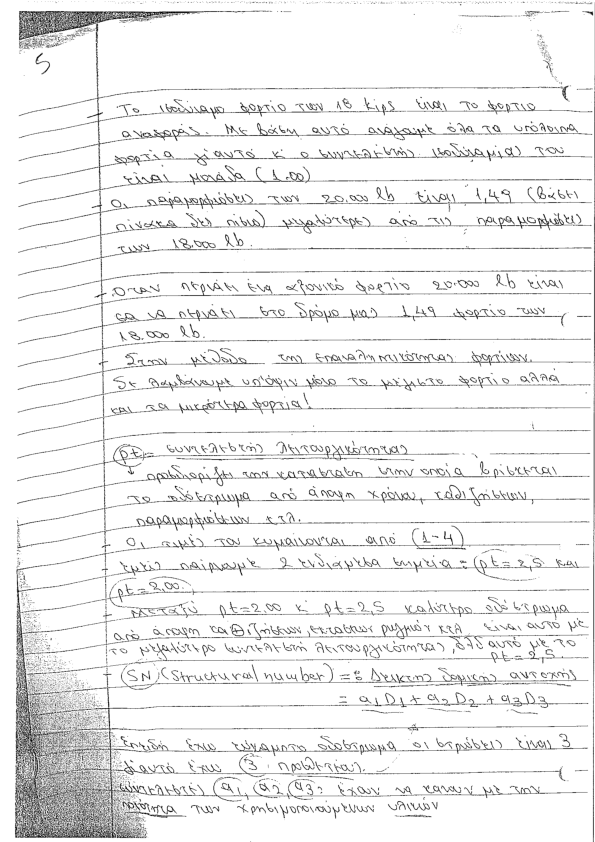 5
- Το ισοδύναμο φορτίο των 18 kips είναι το φορτίο
αναφοράς. Με βάση αυτό ανάγαμε όλα τα υπόλοιπα
φορτία γι'αυτό κι ο συντελεστής ισοδυναμίας του
είναι μονάδα (1.00)
- Οι παραμορφώσεις των 20.000 lb είναι 1,49 (βάσει
πίνακα δες πίσω) μεγαλύτερες από τις παραμορφώσεις
των 18.000 lb.
- Οταν περνάει ένα αξονικό φορτίο 20.000 lb είναι
σα να περνάει στο δρόμο μας 1,49 φορτίο των
18.000 lb.
- Στην μέθοδο της επαναληπτικότητας φορτίων.
δε λαμβάνουμε υπ'όψιν μόνο το μέγιστο φορτίο αλλά
και τα μικρότερα φορτία!
pt = συντελεστής λειτουργικότητας
↓ προσδιορίζει την κατάσταση στην οποία βρίσκεται
το οδόστρωμα από άποψη χρόνου, καθιζήσεων,
παραμορφώσεων κτλ.
- Οι τιμές του κυμαίνονται από (1-4)
- εμείς παίρνουμε 2 ενδιάμεσα σημεία: pt = 2,5 και
pt = 2,00.
- Μεταξύ pt=2,00 κι pt=2,5 καλύτερο οδόστρωμα
από άποψη καθιζήσεων, εκτάσεων ρωγμών κτλ είναι αυτό με
το μεγαλύτερο συντελεστή λειτουργικότητας, δλδ αυτό με το
pt = 2,5
- SN (Structural number) =: Δείκτης δομικής αντοχής
= a1D1 + a2D2 + a3D3
Επειδή έχω εύκαμπτο οδόστρωμα οι στρώσεις είναι 3
γι'αυτό έχω 3 προσθετέους.
συντελεστές a1, a2, a3: έχουν να κάνουν με την
ποιότητα των χρησιμοποιούμενων υλικών